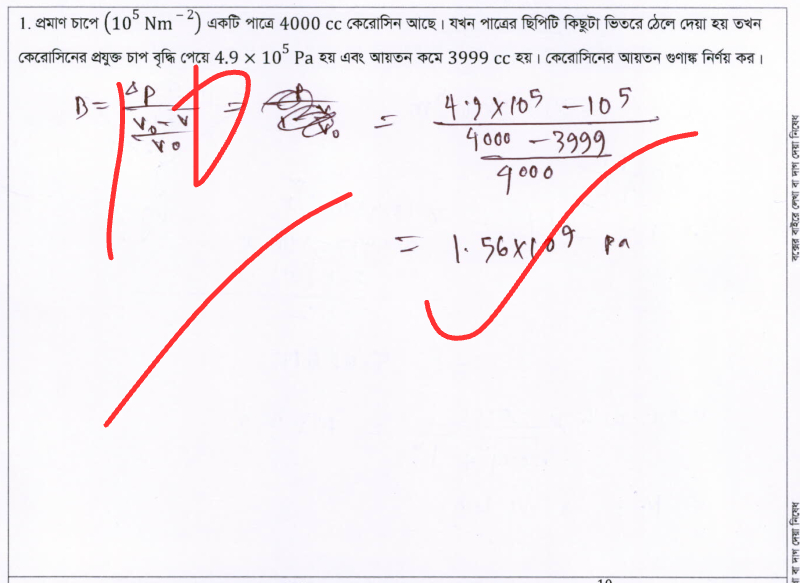 1. প্রমাণ চাপে (10⁵ Nm⁻²) একটি পাত্রে 4000 cc কেরোসিন আছে। যখন পাত্রের ছিপিটি কিছুটা ভিতরে ঠেলে দেয়া হয় তখন
কেরোসিনের প্রযুক্ত চাপ বৃদ্ধি পেয়ে 4.9 × 10⁵ Pa হয় এবং আয়তন কমে 3999 cc হয়। কেরোসিনের আয়তন গুণাঙ্ক নির্ণয় কর।
B = ΔP / ((V₀ − V) / V₀) = = (4.9×10⁵ − 10⁵) / ((4000 − 3999) / 4000)
= 1.56×10⁹ Pa
বক্সের বাইরে লেখা বা দাগ দেয়া নিষেধ
বা দাগ দেয়া নিষেধ